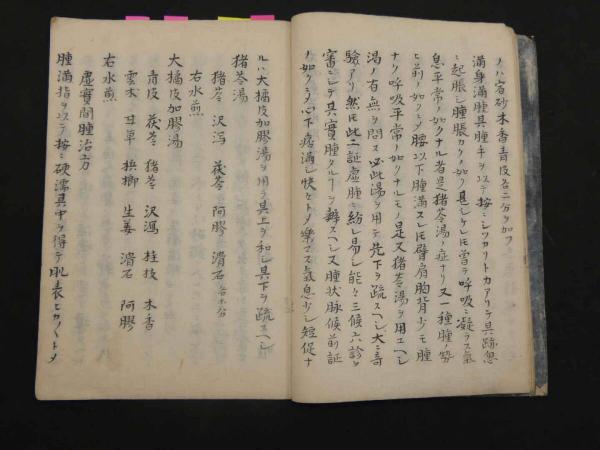 ノハ宿砂木香青皮各二分ヲ加フ
満身満腫其腫手ヲ以テ按ニシツカリト力アリテ其跡忽
ニ起脹シ腫脹カクノ如ク甚シケレ𪜈嘗テ呼吸ニ凝ラス氣
息平常ノ如クナル者是猪苓湯ノ症ナリ又一種腫ノ勢
ヒ前ノ如クニメ腰以下腫満スレ𪜈臂肩胸背少モ腫
ナク呼吸平常ノ如クナルモノ是又猪苓湯ヲ用ユヘシ
渇ノ有無ヲ問ス必此湯ヲ用テ先下ヲ疏スヘシ大ニ奇
驗アリ然𪜈此二証虚腫ニ紛レ易シ能々三候六診ヲ
審ニシテ其實腫タルヿヲ辨スヘシ又腫状脉候前証
ノ如クニメ心下痞満シ快セトメ樂マス氣息少シ短促ナ
ルハ大橘皮加膠湯ヲ用テ其上ヲ和シ其下ヲ疏スヘシ
猪苓湯
猪苓 沢瀉 茯苓 阿膠 滑石各六分
右水煎
大橘皮加膠湯
青皮 茯苓 猪苓 沢瀉 桂枝 木香
雲木 甘草 梹榔 生姜 滑石 阿膠
右水煎
虚實間腫治方
腫満指ヲ以テ按ニ硬濡其中ヲ得テ肌表ヒカ〳〵トメ